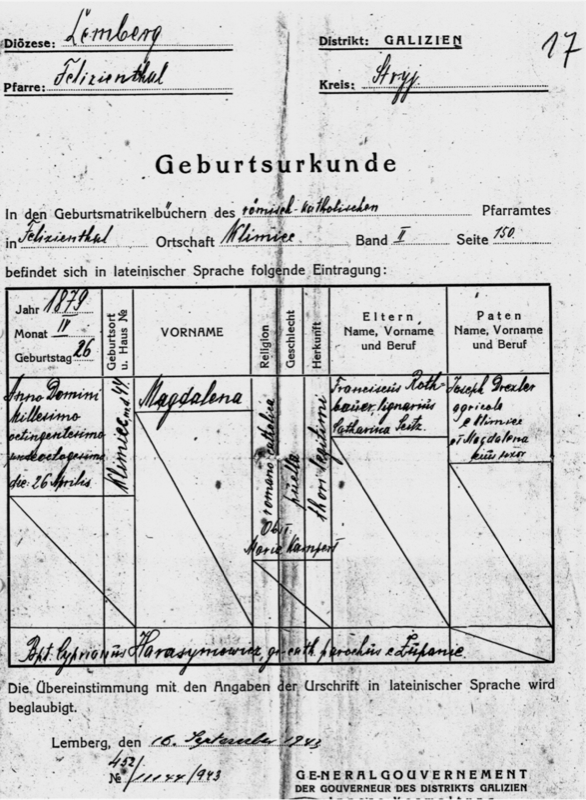 Diözese: Lemberg
Distrikt: GALIZIEN
17
Pfarre: Felizienthal
Kreis: Stryj
Geburtsurkunde
In den Geburtsmatrikelbüchern des römisch-katholischen Pfarramtes
in Felizienthal Ortschaft Klimiec Band II Seite 150
befindet sich in lateinischer Sprache folgende Eintragung:
Jahr 1879
Monat IV
Geburtstag 26
Geburtsort
u. Haus №
VORNAME
Religion
Geschlecht
Herkunft
Eltern
Name, Vorname
und Beruf
Paten
Name, Vorname
und Beruf
Anno Domini
millesimo
octingentesimo
undeoctogesimo
die 26 Aprilis
Klimiec, 44
Magdalena
romano-catholica
puella
thori legitimi
Obst.
Maria Kampert
Franciscus Roth-
bauer, lignarius
Catharina Seitz.
Joseph Drexler
agricola
e Klimiec
et Magdalena
eius uxor
Bpt. Cyprianus Harasymowicz, gr. cath. parochus e Żupanie
Die Übereinstimmung mit den Angaben der Urschrift in lateinischer Sprache wird
beglaubigt.
Lemberg, den 16. September 1943
452/
№ /1144/943
GENERALGOUVERNEMENT
DER GOUVERNEUR DES DISTRIKTS GALIZIEN